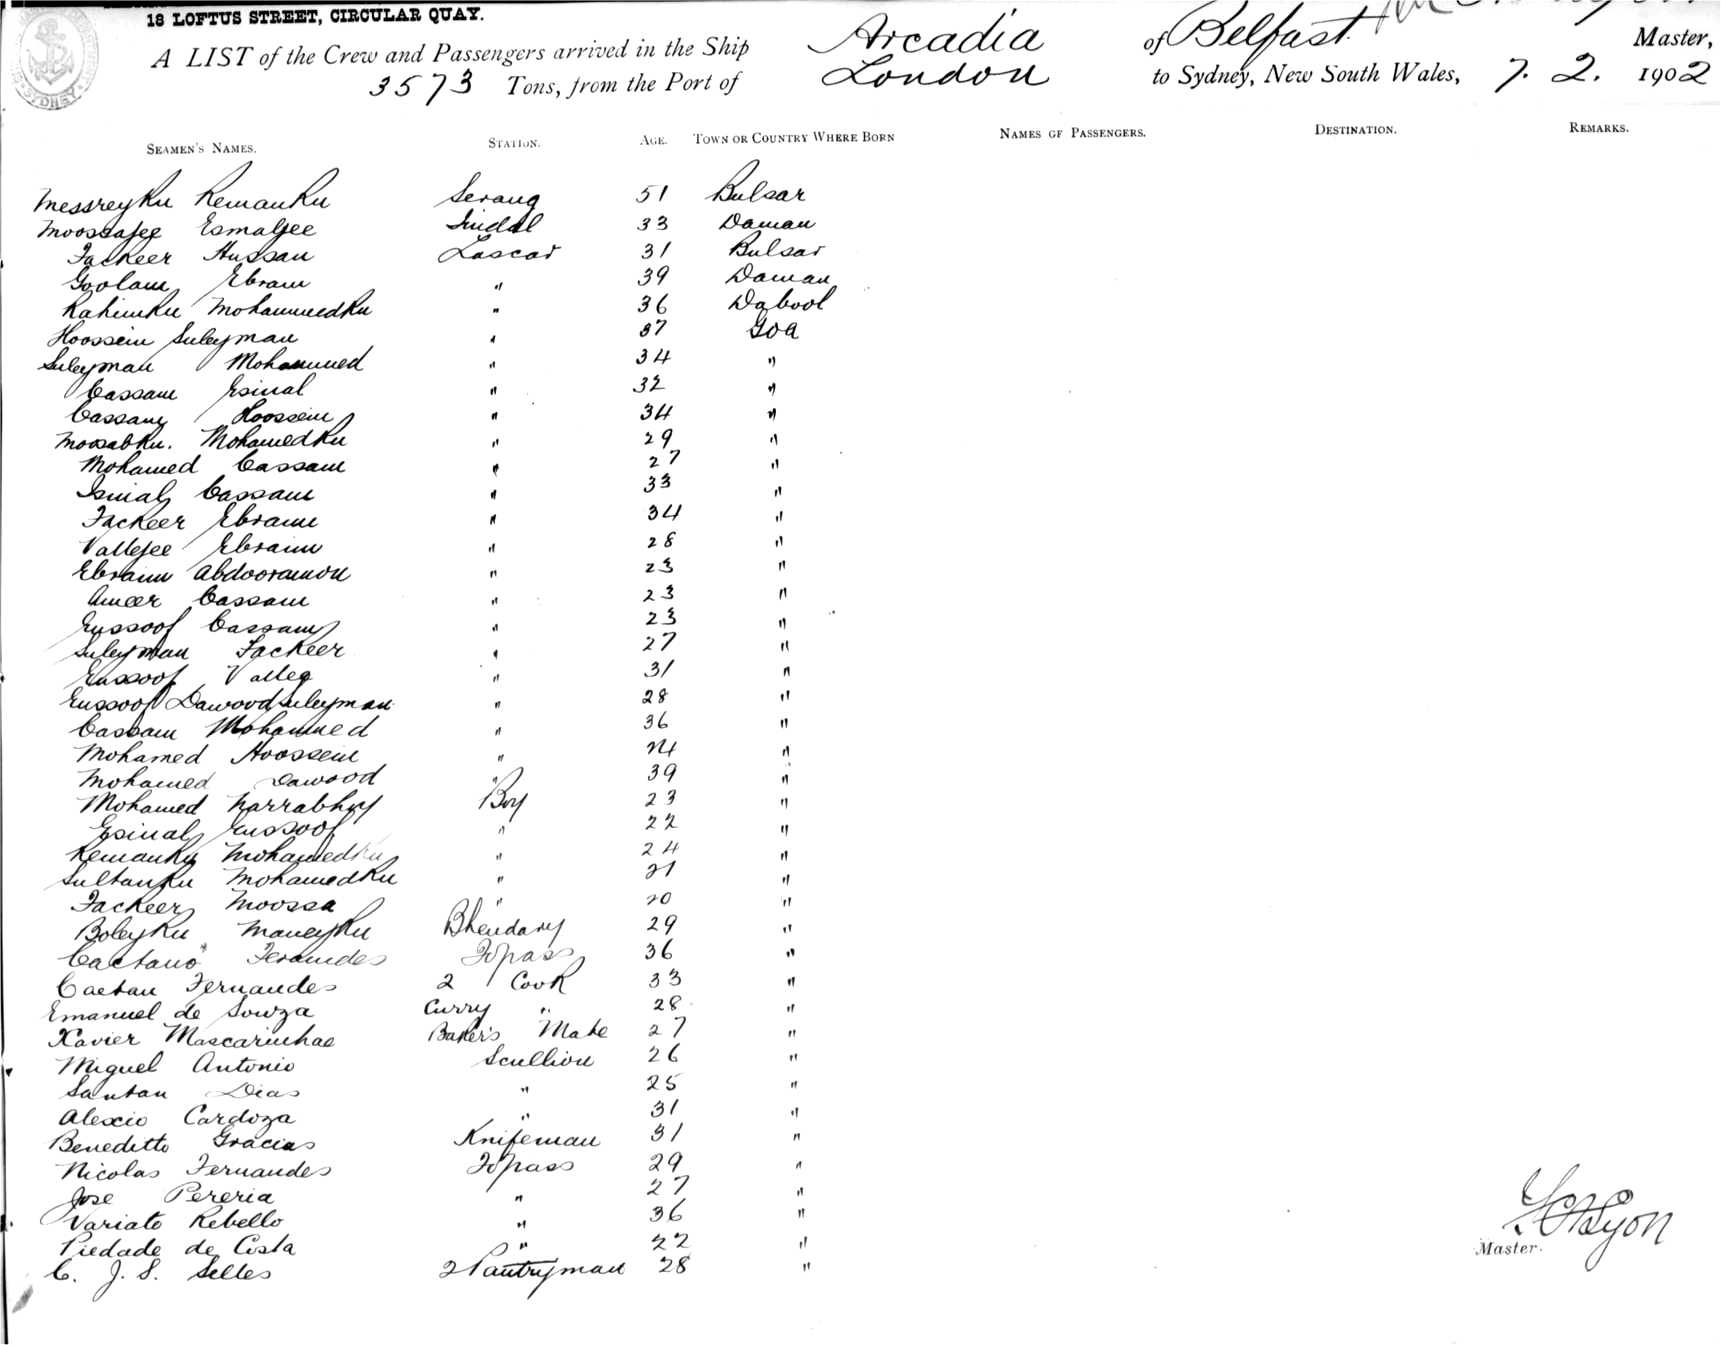 18 LOFTUS STREET, CIRCULAR QUAY.
A LIST of the Crew and Passengers arrived in the Ship Arcadia of Belfast Master,
3573 Tons, from the Port of London to Sydney, New South Wales, 7. 2. 1902
SEAMEN'S NAMES. STATION. AGE. TOWN OR COUNTRY WHERE BORN NAMES OF PASSENGERS. DESTINATION. REMARKS.
Messreyku Remanku Serang 51 Bulsar
Moossajee Esmaljee Tindal 33 Daman
Fackeer Hussan Lascar 31 Bulsar
Goolam Ebram " 39 Daman
Rahimku Mohammedku " 36 Dabool
Hoossein Suleyman " 37 Goa
Suleyman Mohammed " 34 "
Cassam Esmal " 32 "
Cassam Hoossein " 34 "
Moosabku. Mohamedku " 29 "
Mohamed Cassam " 27 "
Ismal Cassam " 33 "
Fackeer Ebram " 34 "
Vallejee Ebraim " 28 "
Ebraim Abdooramon " 23 "
Ameer Cassam " 23 "
Eussoof Cassam " 23 "
Suleyman Fackeer " 27 "
Eussoof Valleg " 31 "
Eussoof Dawood Suleyman " 28 "
Cassam Mohammed " 36 "
Mohamed Hoossein " 24 "
Mohamed Dawood " 39 "
Mohamed Narrabhoy Boy 23 "
Esmal Eussoof " 22 "
Remanku Mohamedku " 24 "
Sultanku Mohamedku " 21 "
Fackeer Moossa " 20 "
Boleyku Maneyku Bhendary 29 "
Caetano Feranides Topass 36 "
Caetan Fernandes 2 Cook 33 "
Emanuel de Souza Curry " 28 "
Xavier Mascarinhas Baker's Mate 27 "
Miguel Antonio Scullion 26 "
Santan Dias " 25 "
Alexio Cardoza " 31 "
Beneditto Gracias Knifeman 31 "
Nicolas Fernandes Topass 29 "
Jose Pereria " 27 "
Variato Rebello " 36 "
Piedade de Costa " 22 "
C. J. S. Selles 2 Pantryman 28 "
Master.